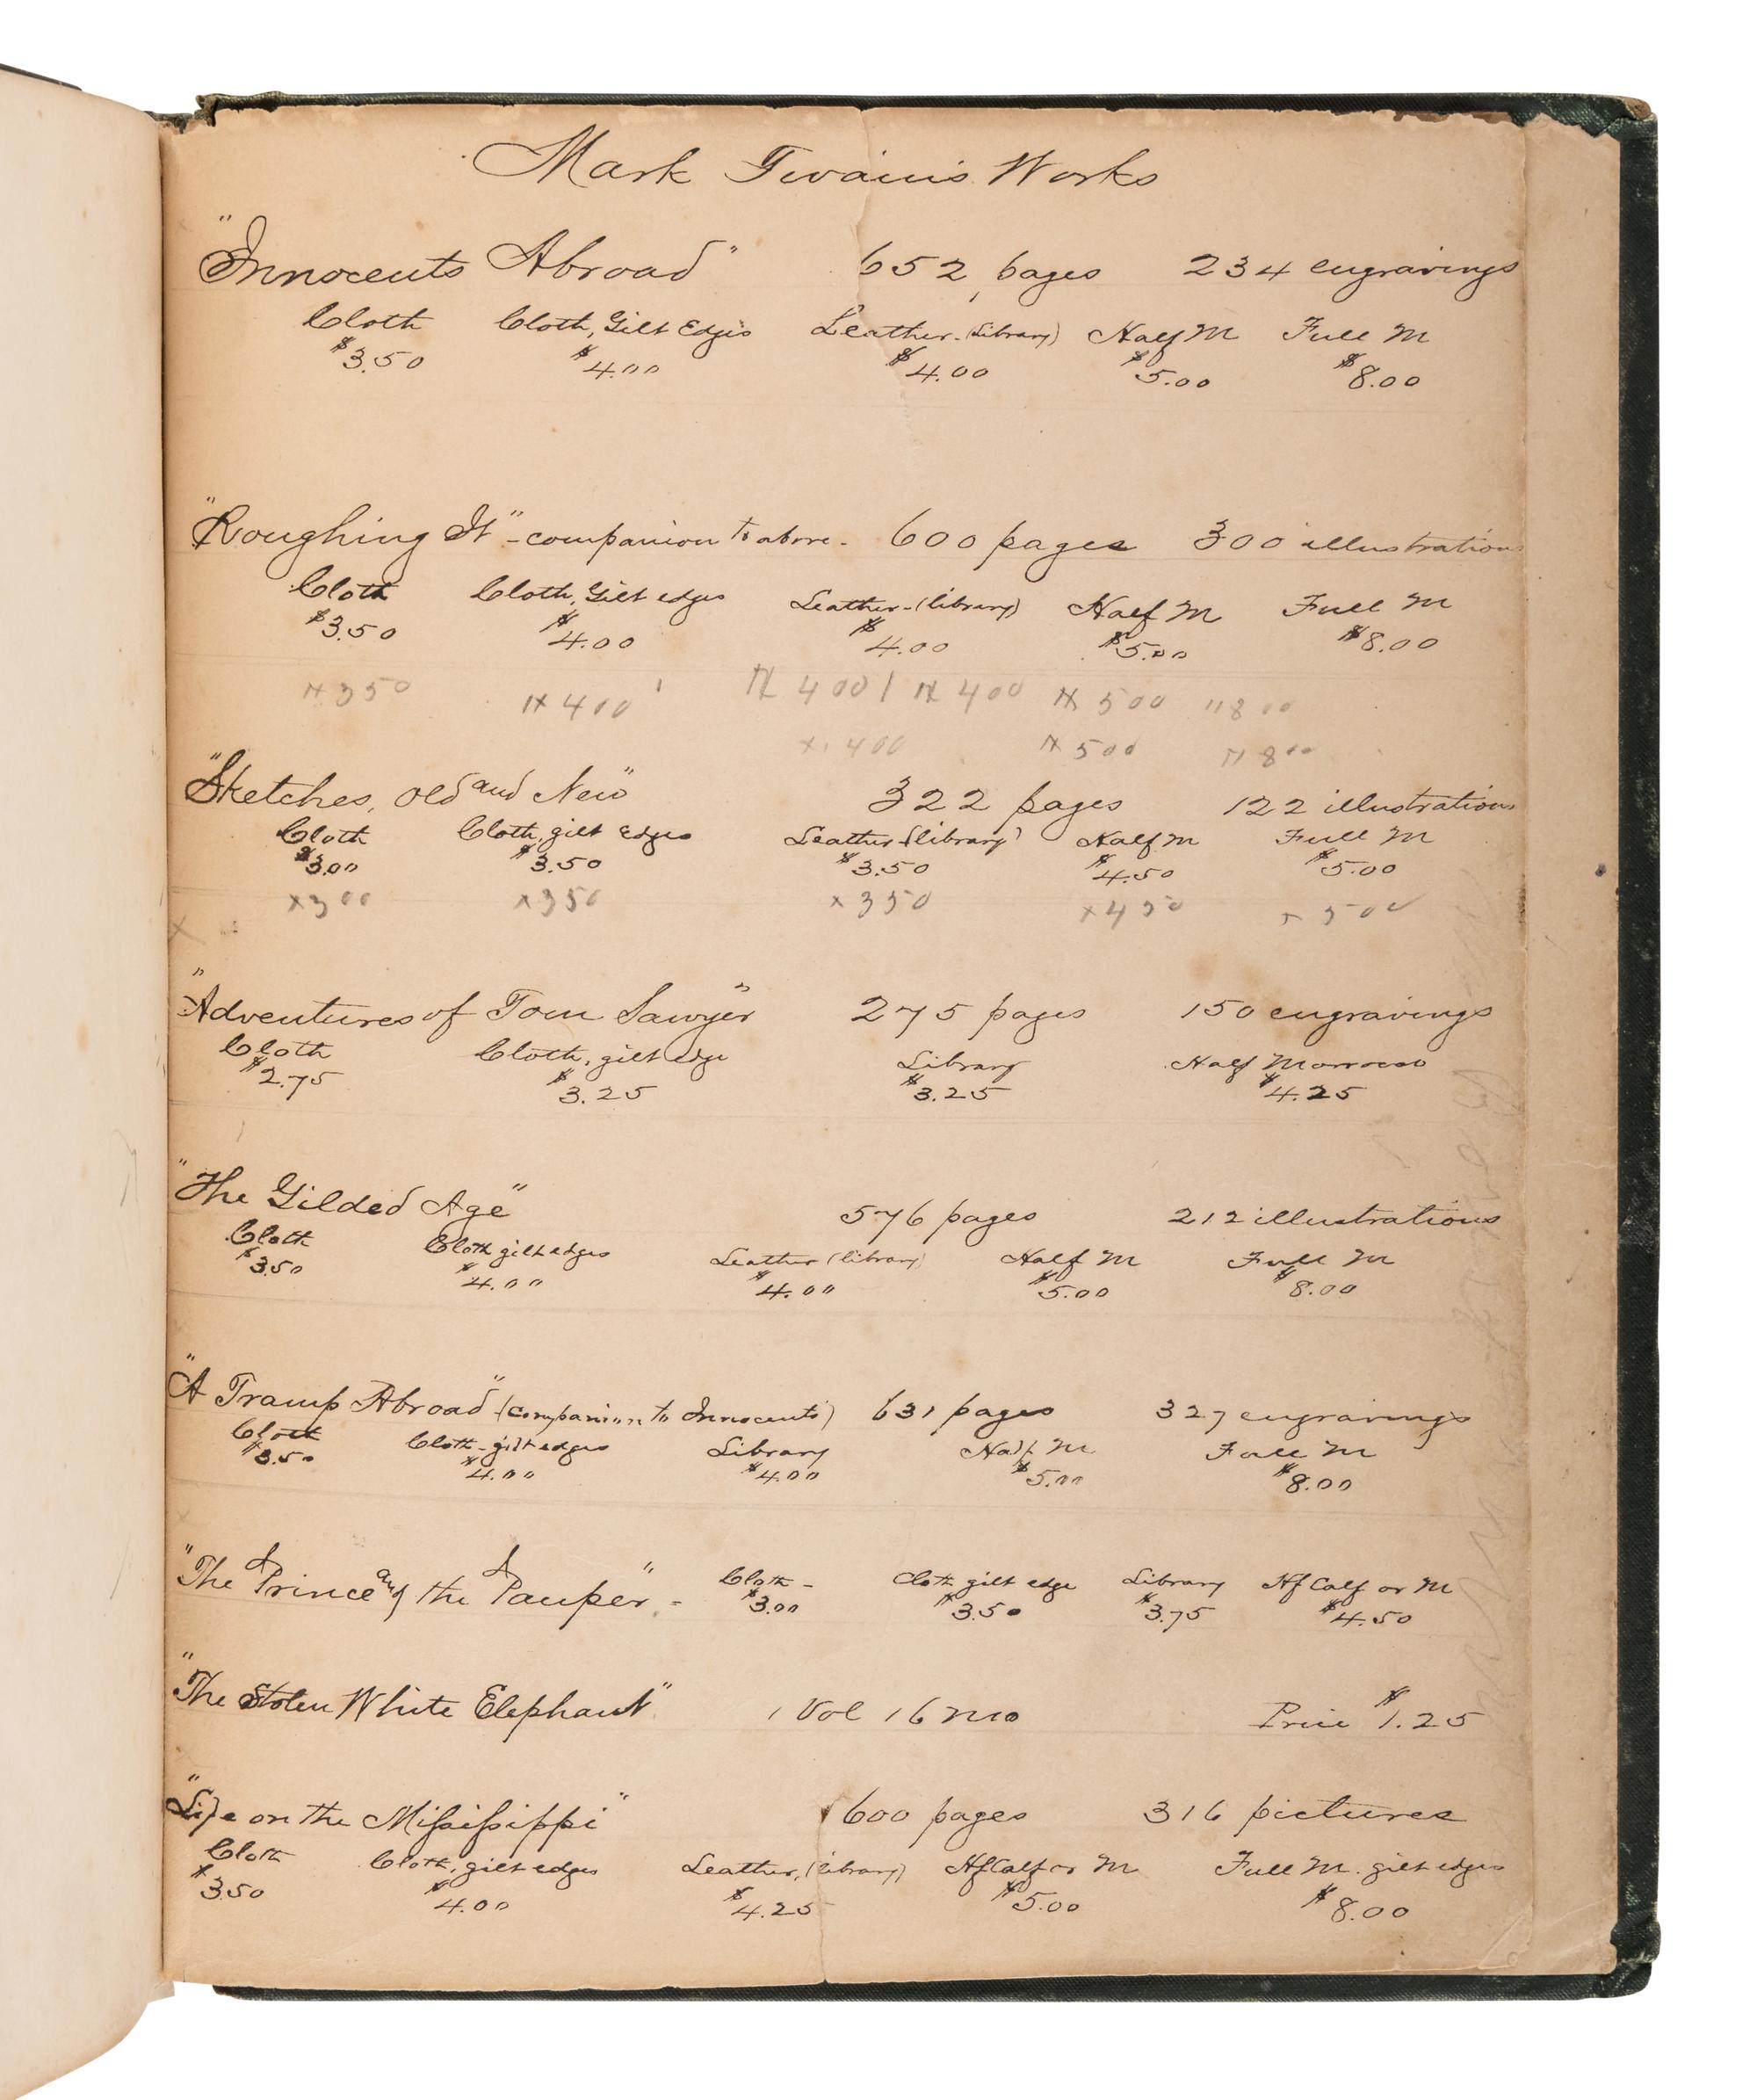 Mark Twain's Works
"Innocents Abroad" 652 pages 234 engravings
Cloth Cloth, Gilt Edges Leather-(Library) Half M Full M
$3.50 $4.00 $4.00 $5.00 $8.00
"Roughing It" - companion to above - 600 pages 300 illustrations
Cloth Cloth, Gilt edges Leather-(library) Half M Full M
$3.50 $4.00 $4.00 $5.00 $8.00
350 400 400 400 500 800
400 500 800
"Sketches, Old and New" 322 pages 122 illustrations
Cloth Cloth, gilt Edges Leather (library) Half M Full M
$3.00 $3.50 $3.50 $4.50 $5.00
x 300 x 350 x 350 x 450 x 500
"Adventures of Tom Sawyer" 275 pages 150 engravings
Cloth Cloth, gilt edge Library Half Morrocco
$2.75 $3.25 $3.25 $4.25
"The Gilded Age" 576 pages 212 illustrations
Cloth Cloth gilt edges Leather (library) Half M Full M
$3.50 $4.00 $4.00 $5.00 $8.00
"A Tramp Abroad" (companion to Innocents) 631 pages 327 engravings
Cloth Cloth-gilt edges Library Half M Full M
$3.50 $4.00 $4.00 $5.00 $8.00
"The Prince and the Pauper" - Cloth - Cloth gilt edge Library Hf Calf or M
$3.00 $3.50 $3.75 $4.50
"The Stolen White Elephant" 1 Vol 16mo Price $1.25
"Life on the Mississippi" 600 pages 316 pictures
Cloth Cloth, gilt edges Leather, (library) Hf Calf or M Full M. gilt edges
$3.50 $4.00 $4.25 $5.00 $8.00